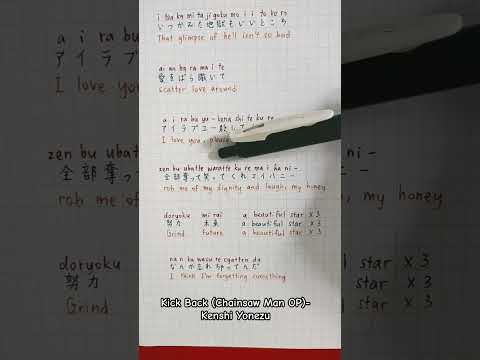 i tsu ka mi ta ji goku mo i i to ko ro
いつかみた地獄もいいところ
That glimpse of hell isn't so bad
ai wo ba ra ma i te
愛をばら撒いて
scatter love around
a i ra bu yu - kena shi te ku re
アイラブユー貶して
I love you
zen bu ubatte waratte ku re ma i ha ni -
全部奪って笑ってくれマイハニー
rob me of my dignity and laugh, my honey
doryoku mirai a beautiful star x 3
努力 未来 a beautiful star x 3
Grind Future a beautiful star x 3
na n ka wasu re cyatten da
なんか忘れちゃってんだ
I think I'm forgetting everything
Kick Back (Chainsaw Man OP)-
Kenshi Yonezu